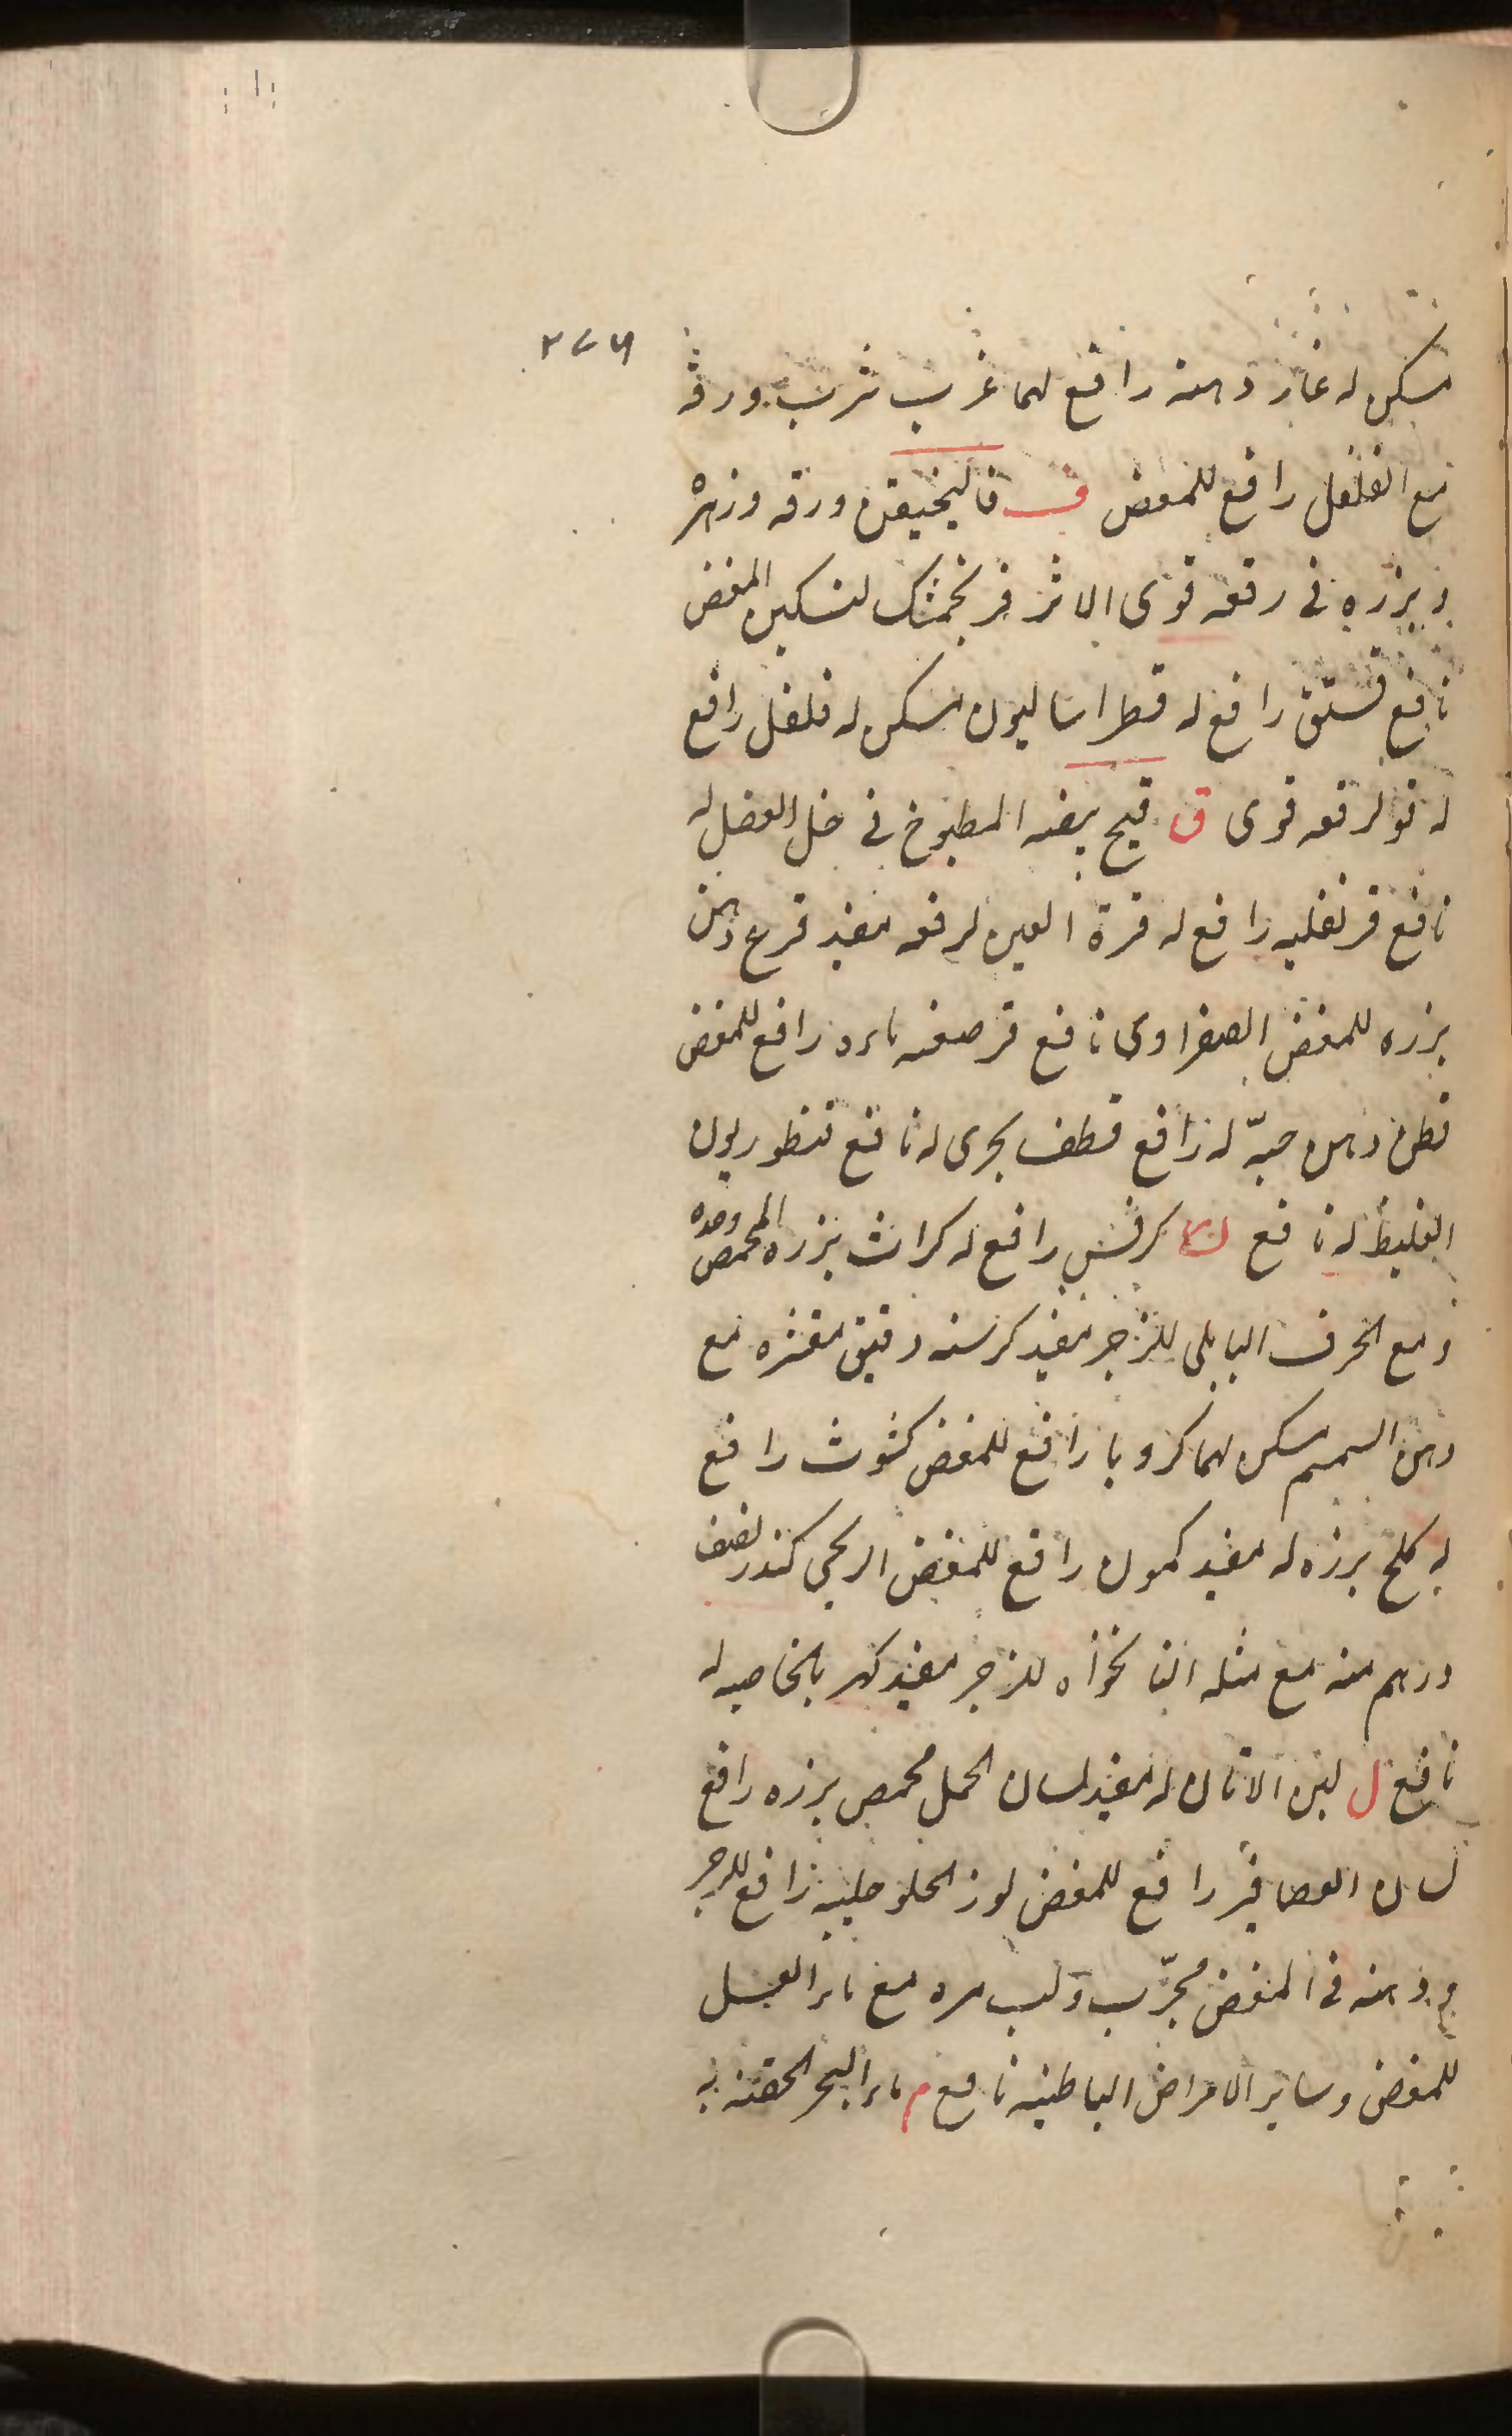 مسكن له غار دهنه رافع لهما غرب شرب ورقه
مع الفلفل رافع للمغص ف فاليخيقن ورقه وزهره
وبزره في رفعه قوى الاثر فرنجمشك لتسكين المغص
نافع فستق رافع له فطراساليون مسكن له فلفل رافع
له فو لرفعه قوى ق قبج بيضه المطبوخ في خل العنصل له
نافع قرنفليه رافع له قرة العين لرفعه مفيد قرع دهن
بزره للمغص الصفراوى نافع قرصعنه بارد رافع للمغص
قطن دهن حبّه له رافع قطف بحرى له نافع قنطوريون
الغليظ له نافع ك كرفس رافع له كراث بزره المحمص وحده
ومع الحرف البابلى للزحير مفيد كرسنه دقيق مقشره مع
دهن السمسم مسكن لهما كرويا رافع للمغص كشوث رافع
له كلخ بزره له مفيد كمون رافع للمغص الريحى كندر نصف
درهم منه مع مثله النانخواه للزحير مفيد كهربا بالخاصيه له
نافع ل لبن الاتان له مفيد لسان الحمل محمص بزره رافع
لسان العصافير رافع للمغص لوز الحلو حليبه رافع للزحير
م ودهنه في المغص مجرّب ولب مره مع ماء العسل
للمغص وساير الامراض الباطنيه نافع م ماء البحر الحقنة به